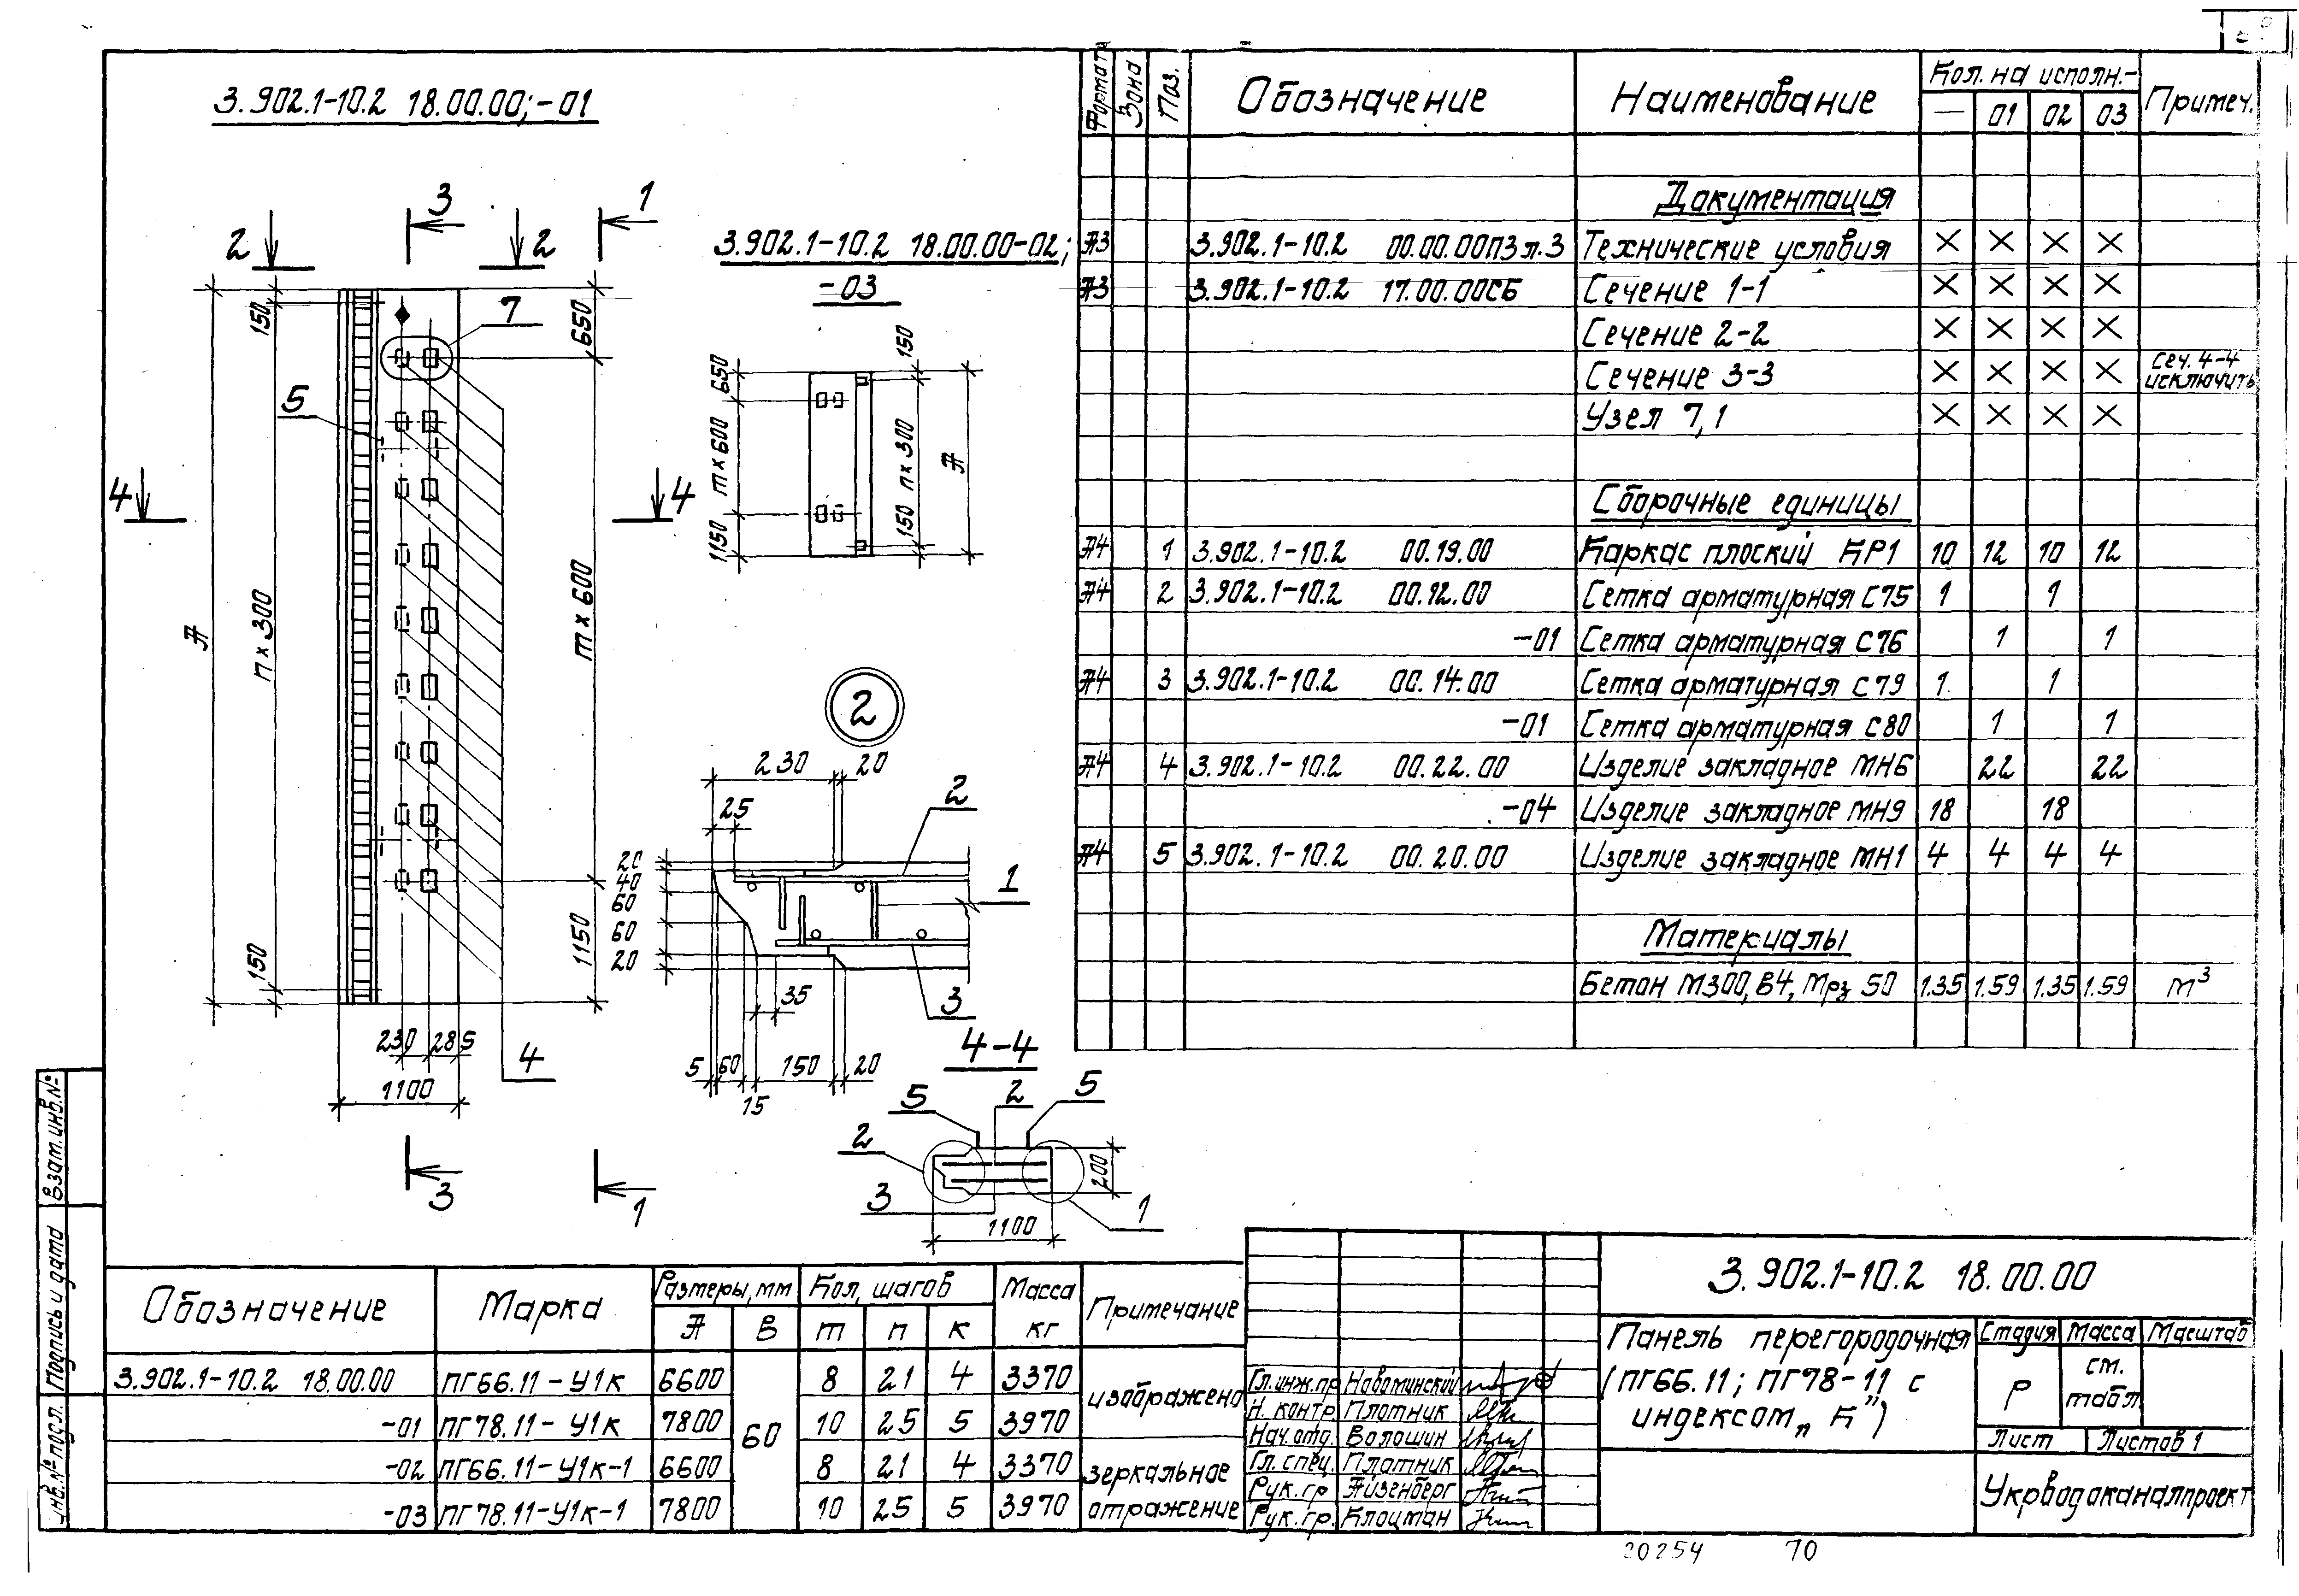 3.902.1-10.2 18.00.00;-01
3
1
2
2
150
7
650
5
4
4
А
п×300
т×600
150
1150
230
285
1100
4
3
1
3.902.1-10.2 18.00.00-02;
-03
650
150
т×600
п×300
А
1150
150
2
230
20
25
2
20
40
60
60
20
1
3
35
5
60
15
150
20
4-4
5
2
5
2
3
200
1100
1
Формат
Зона
Поз.
Обозначение
Наименование
Кол. на исполн.-
Примеч.
—
01
02
03
Документация
А3 3.902.1-10.2 00.00.00ПЗ л.3 Технические условия × × × ×
А3 3.902.1-10.2 17.00.00СБ Сечение 1-1 × × × ×
Сечение 2-2 × × × ×
Сечение 3-3 × × × × Сеч. 4-4 исключить
Узел 7,1 × × × ×
Сборочные единицы
А4 1 3.902.1-10.2 00.19.00 Каркас плоский КР1 10 12 10 12
А4 2 3.902.1-10.2 00.12.00 Сетка арматурная С75 1 1
-01 Сетка арматурная С76 1 1
А4 3 3.902.1-10.2 00.14.00 Сетка арматурная С79 1 1
-01 Сетка арматурная С80 1 1
А4 4 3.902.1-10.2 00.22.00 Изделие закладное МН6 22 22
-04 Изделие закладное МН9 18 18
А4 5 3.902.1-10.2 00.20.00 Изделие закладное МН1 4 4 4 4
Материалы
Бетон М300, В4, Мрз 50 1.35 1.59 1.35 1.59 м³
Обозначение
Марка
Размеры, мм
Кол. шагов
Масса кг
Примечание
А В т п к
3.902.1-10.2 18.00.00 ПГ66.11-У1к 6600 60 8 21 4 3370 изображено
-01 ПГ78.11-У1к 7800 10 25 5 3970
-02 ПГ66.11-У1к-1 6600 8 21 4 3370 зеркальное
-03 ПГ78.11-У1к-1 7800 10 25 5 3970 отражение
Гл.инж.пр Новоминский
Н. контр. Плотник
Нач.отд. Волошин
Гл. спец. Плотник
Рук. гр Айзенберг
Рук. гр. Клоцман
3.902.1-10.2 18.00.00
Панель перегородочная
(ПГ66.11; ПГ78-11 с
индексом „К")
Стадия Масса Масштаб
Р
см.
табл.
Лист
Листов 1
Укрводоканалпроект
Взам. инв.№
Подпись и дата
Инв.№ подл.
20254
70